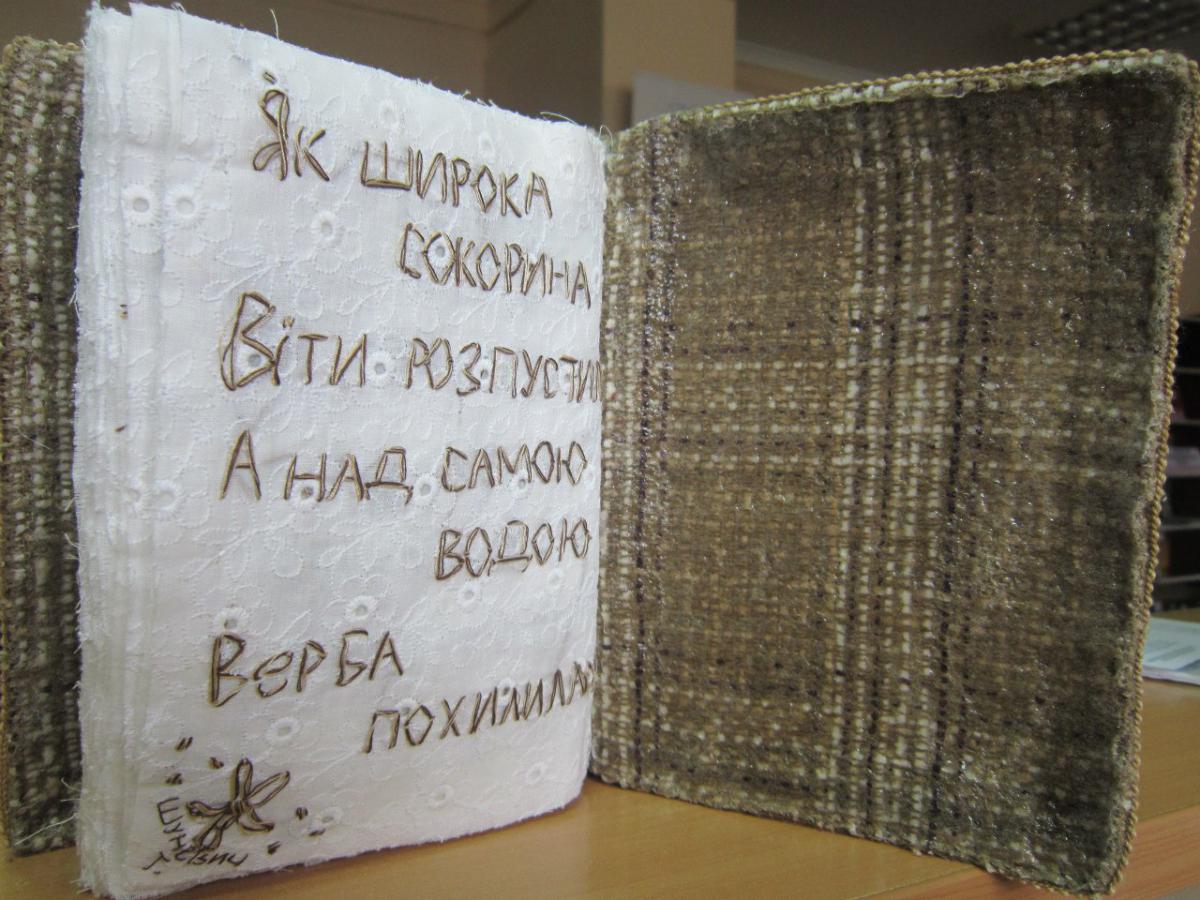 Як ШИРОКА
СОКОРИНА
ВіТИ РОЗПУСТИЛ
А НАД САМОЮ
ВОДОЮ
ВеРБА
ПОХИЛИЛА